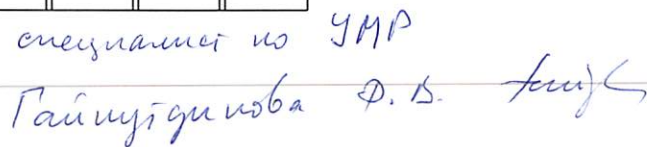 специалист по УМР
Гайнутдинова Ф. В.